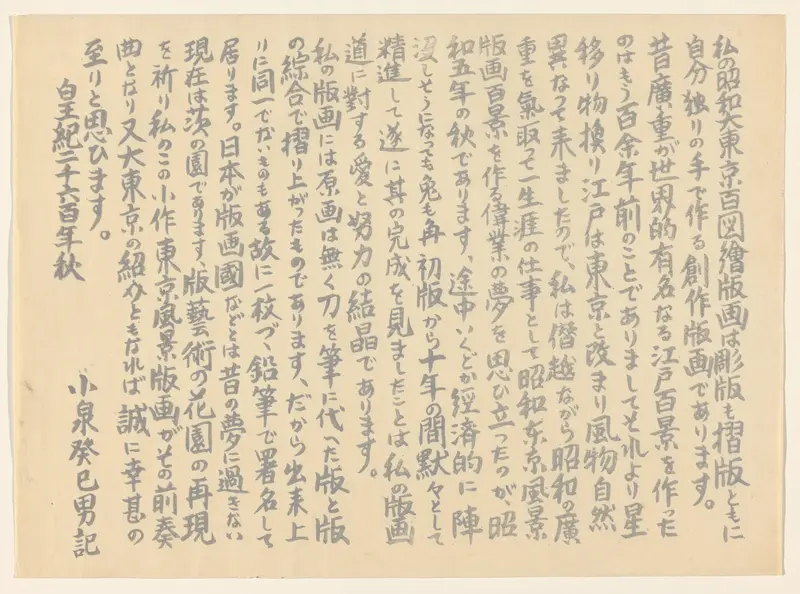 私の昭和大東京百図繪版画は彫版も摺版ともに
自分独りの手で作る創作版画であります。
昔廣重が世界的有名なる江戸百景を作った
のはもう百余年前のことでありましてそれより星
移り物換り江戸は東京と改まり風物自然
異なって来ましたので、私は僭越ながら昭和の廣
重を氣取って一生涯の仕事として昭和東京風景
版画百景を作る偉業の夢を思ひ立ったのが、昭
和五年の秋であります、途中いくどか経済的に陣
没しそうになっても兎も角初版から十年の間黙々として
精進して遂に其の完成を見ましたことは私の版画
道に對する愛と努力の結晶であります。
私の版画には原画は無く刀を筆に代へた版と版
の綜合で摺り上がったものであります、だから出来上
りに同一でないものもある故に一枚づゝ鉛筆で署名して
居ります。日本が版画國などとは昔の夢に過ぎない
現在は茨の園であります、版藝術の花園の再現
を祈り私のこの小作東京風景版画がその前奏
曲となり又大東京の紹介ともなれば誠に幸甚の
至りと思ひます。
皇紀二千六百年秋
小泉癸巳男記